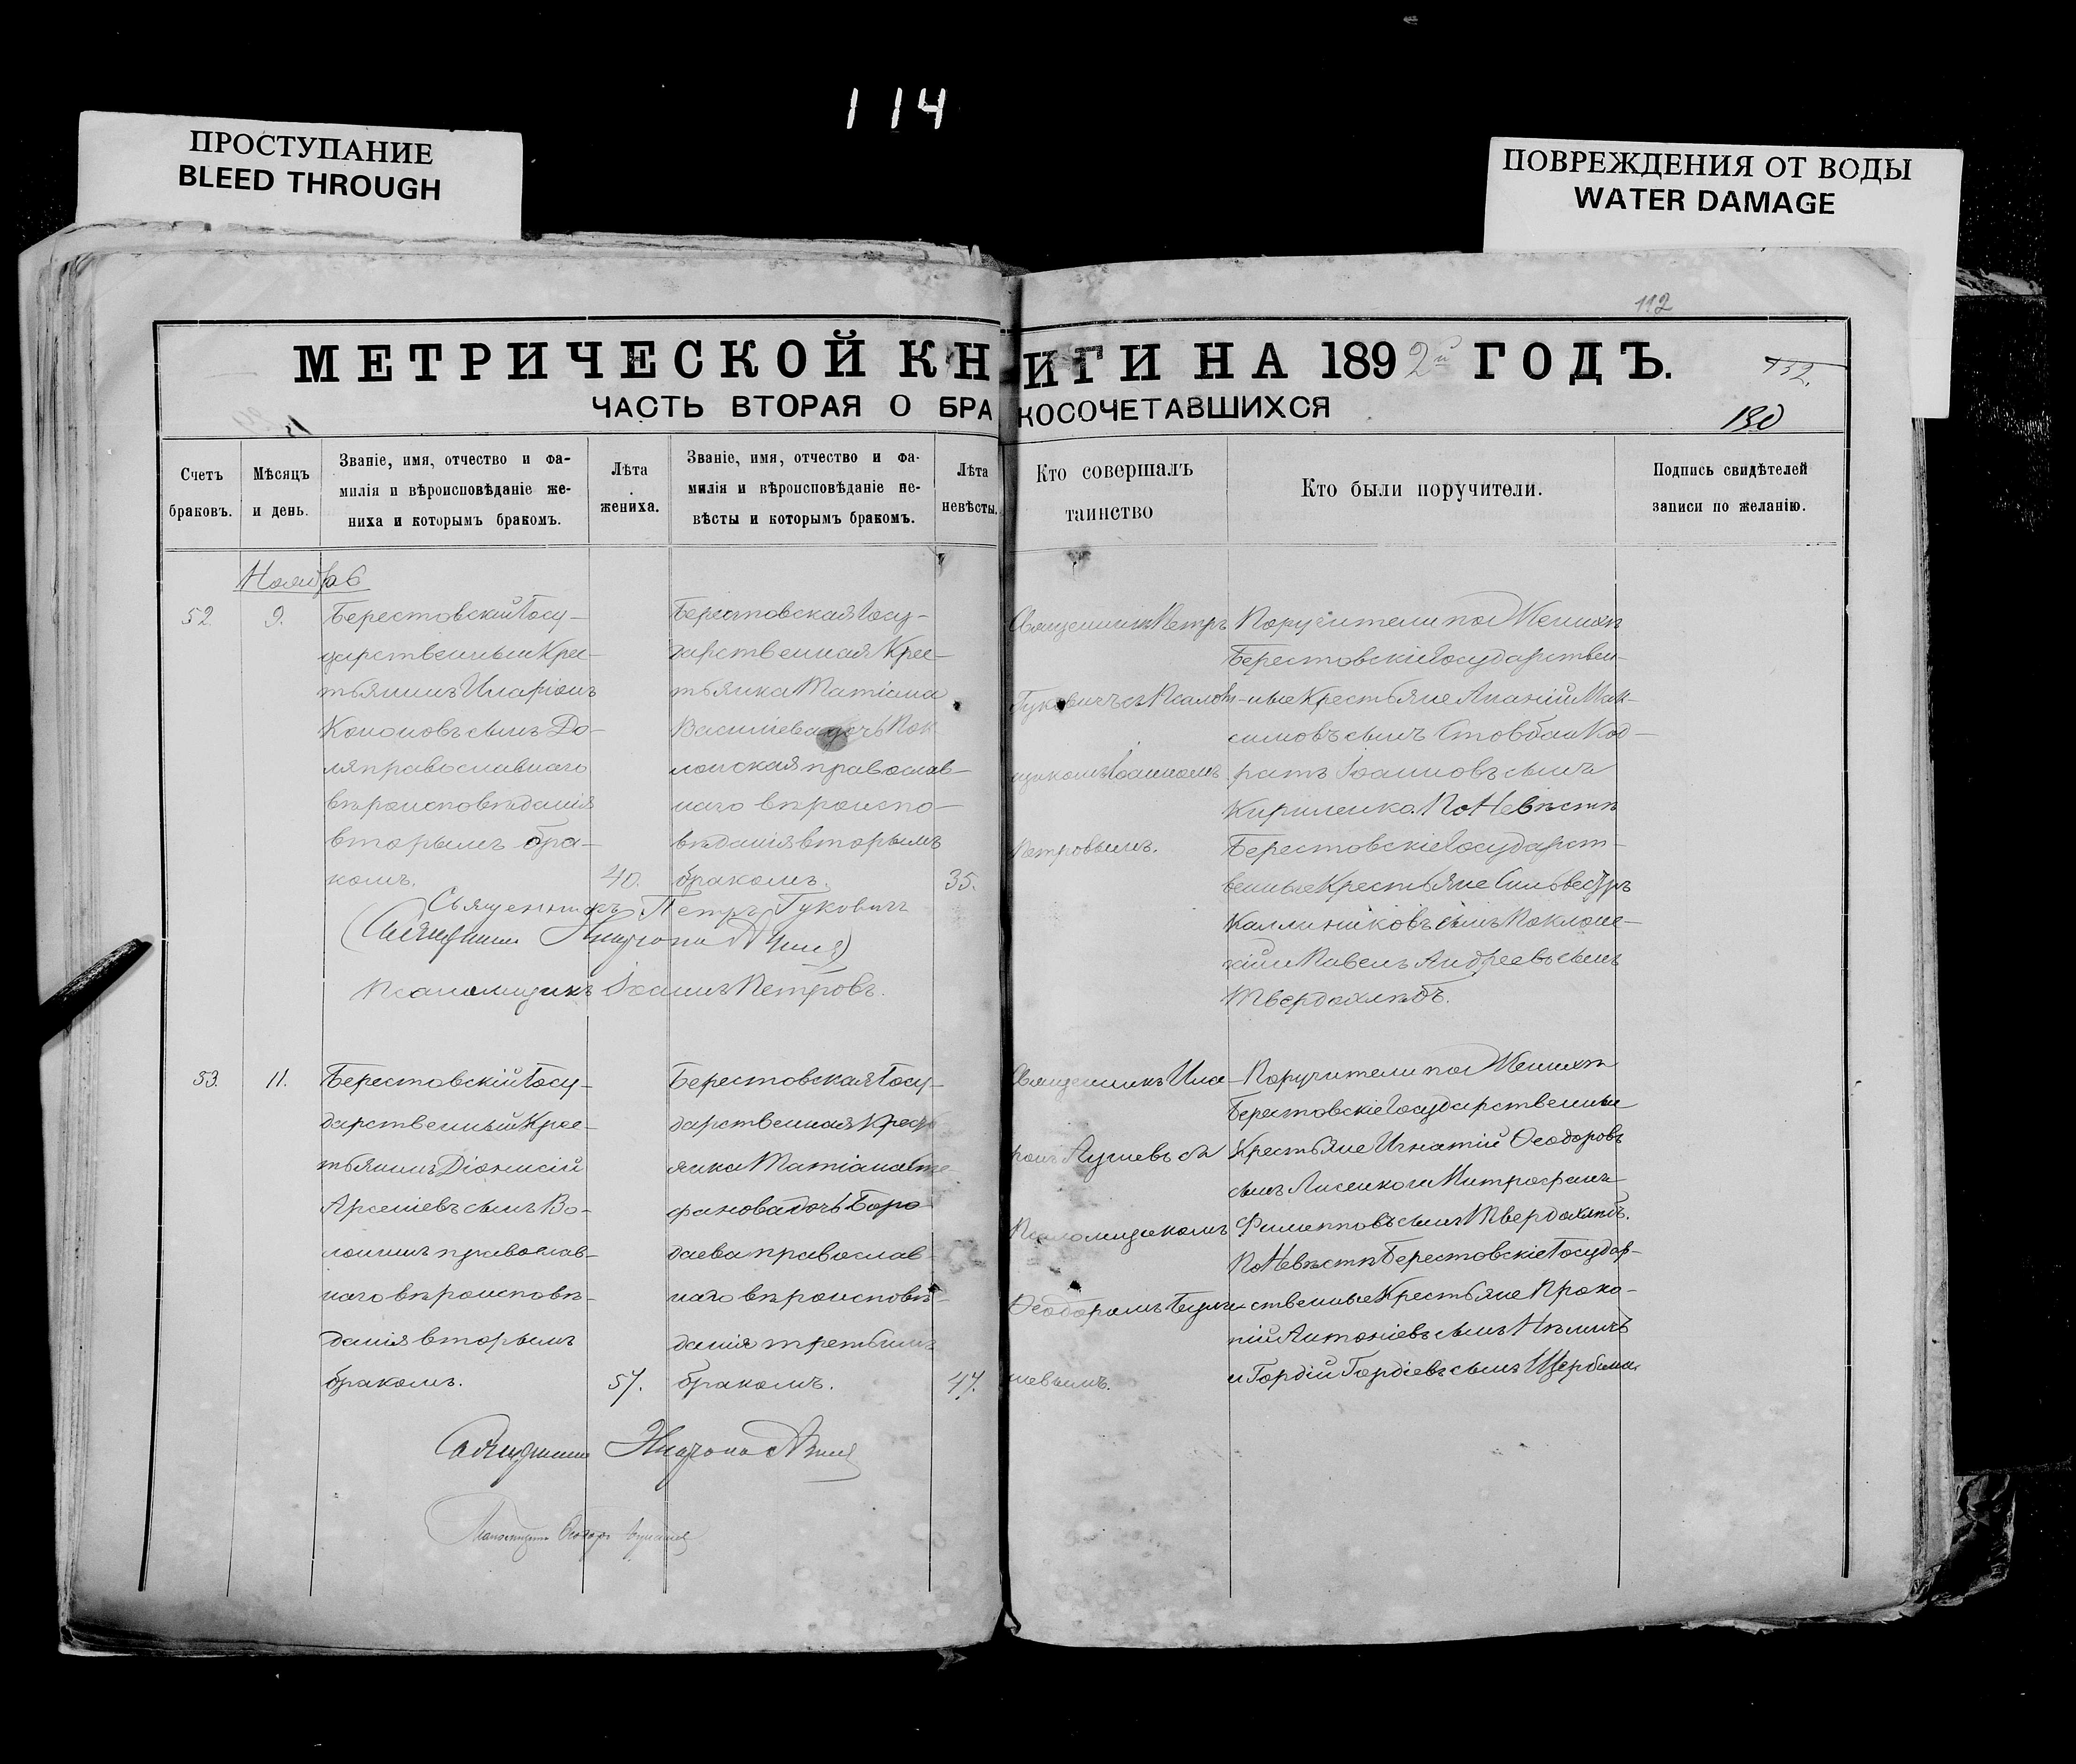 114
ПРОСТУПАНИЕ
BLEED THROUGH
ПОВРЕЖДЕНИЯ ОТ ВОДЫ
WATER DAMAGE
112
МЕТРИЧЕСКОЙ КНИГИ НА 1892й ГОДЪ.
132.
ЧАСТЬ ВТОРАЯ О БРАКОСОЧЕТАВШИХСЯ
130
Счетъ браковъ.
Мѣсяцъ и день.
Званіе, имя, отчество и фа-
милія и вѣроисповѣданіе же-
ниха и которымъ бракомъ.
Лѣта жениха.
Званіе, имя, отчество и фа-
милія и вѣроисповѣданіе не-
вѣсты и которымъ бракомъ.
Лѣта невѣсты.
Кто совершалъ таинство
Кто были поручители.
Подпись свидѣтелей
записи по желанію.
Ноября
52.
9.
Берестовскій Госу-
дарственный Крес-
тьянинъ Иларіонъ
Кононовъ сынъ До-
ля православнаго
вѣроисповѣданія
вторымъ бра-
комъ.
40.
Берестовская Госу-
дарственная Крес-
тьянка Татіана
Василіева дочь Пок-
лонская православ-
наго вѣроиспо-
вѣданія вторымъ
бракомъ.
35.
Священникъ Петръ
Гуковичъ съ Псалом-
щикомъ Іоанномъ
Петровымъ.
Поручители по Женихѣ
Берестовскіе Государствен-
ные Крестьяне Ананій Мак-
симовъ сынъ Стовбан Код-
ратъ Іоанновъ сынъ
Кириленко. По Невѣстѣ
Берестовскіе Государст-
венные Крестьяне Сильвестръ
Каллиниковъ сынъ Поклонс-
кій и Павелъ Андреевъ сынъ
Твердохлѣбъ.
Священникъ Петръ Гуковичъ
(Священникъ
Псаломщикъ Іоаннъ Петровъ.
53.
11.
Берестовскій Госу-
дарственный Крес-
тьянинъ Діонисій
Арсеніевъ сынъ Во-
лошинъ православ-
наго вѣроисповѣ-
данія вторымъ
бракомъ.
57.
Берестовская Госу-
дарственная Кресть-
янка Татіана Сте-
фанова дочь Боро-
даева православ-
наго вѣроисповѣ-
данія третьимъ
бракомъ.
47.
Священникъ Ила-
ронъ съ
Псаломщикомъ
Ѳеодоромъ
Поручители по Женихѣ
Берестовскіе Государственные
Крестьяне Игнатій Ѳеодоровъ
сынъ Лисенко и Митрофанъ
Филипповъ сынъ Твердохлѣбъ.
По Невѣстѣ Берестовскіе Государ-
ственные Крестьяне Проко-
пій Антоніевъ сынъ Нѣмичъ
и Гордій Гордіевъ сынъ Щербина
Священникъ
Псаломщикъ Ѳеодоръ